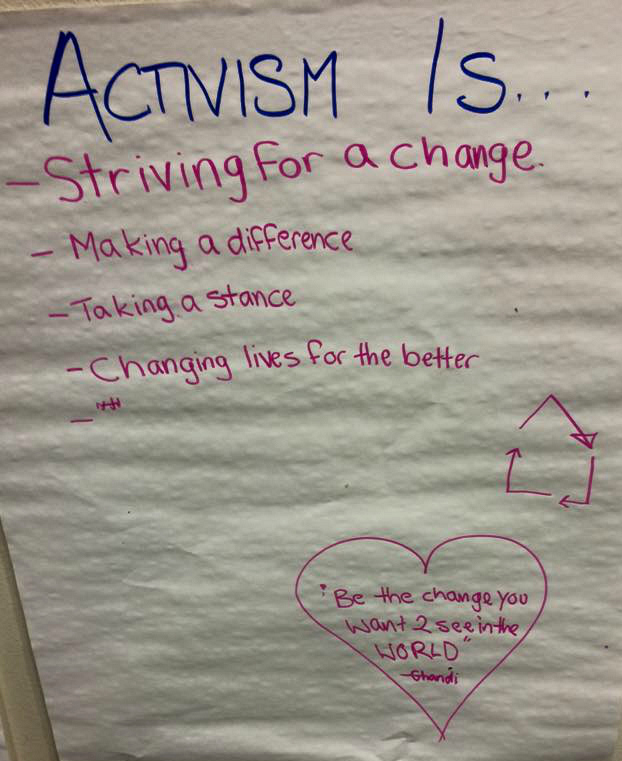 ACTIVISM IS...
- Striving For a change.
- Making a difference
- Taking a stance
- Changing lives for the better
-
"Be the change you
want 2 see in the
WORLD"
-Ghandi